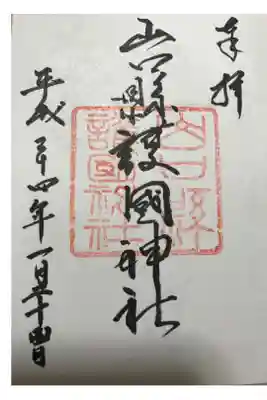 奉拝
山口縣護國神社
山口縣
護國神社
平成二十四年一月二十四日